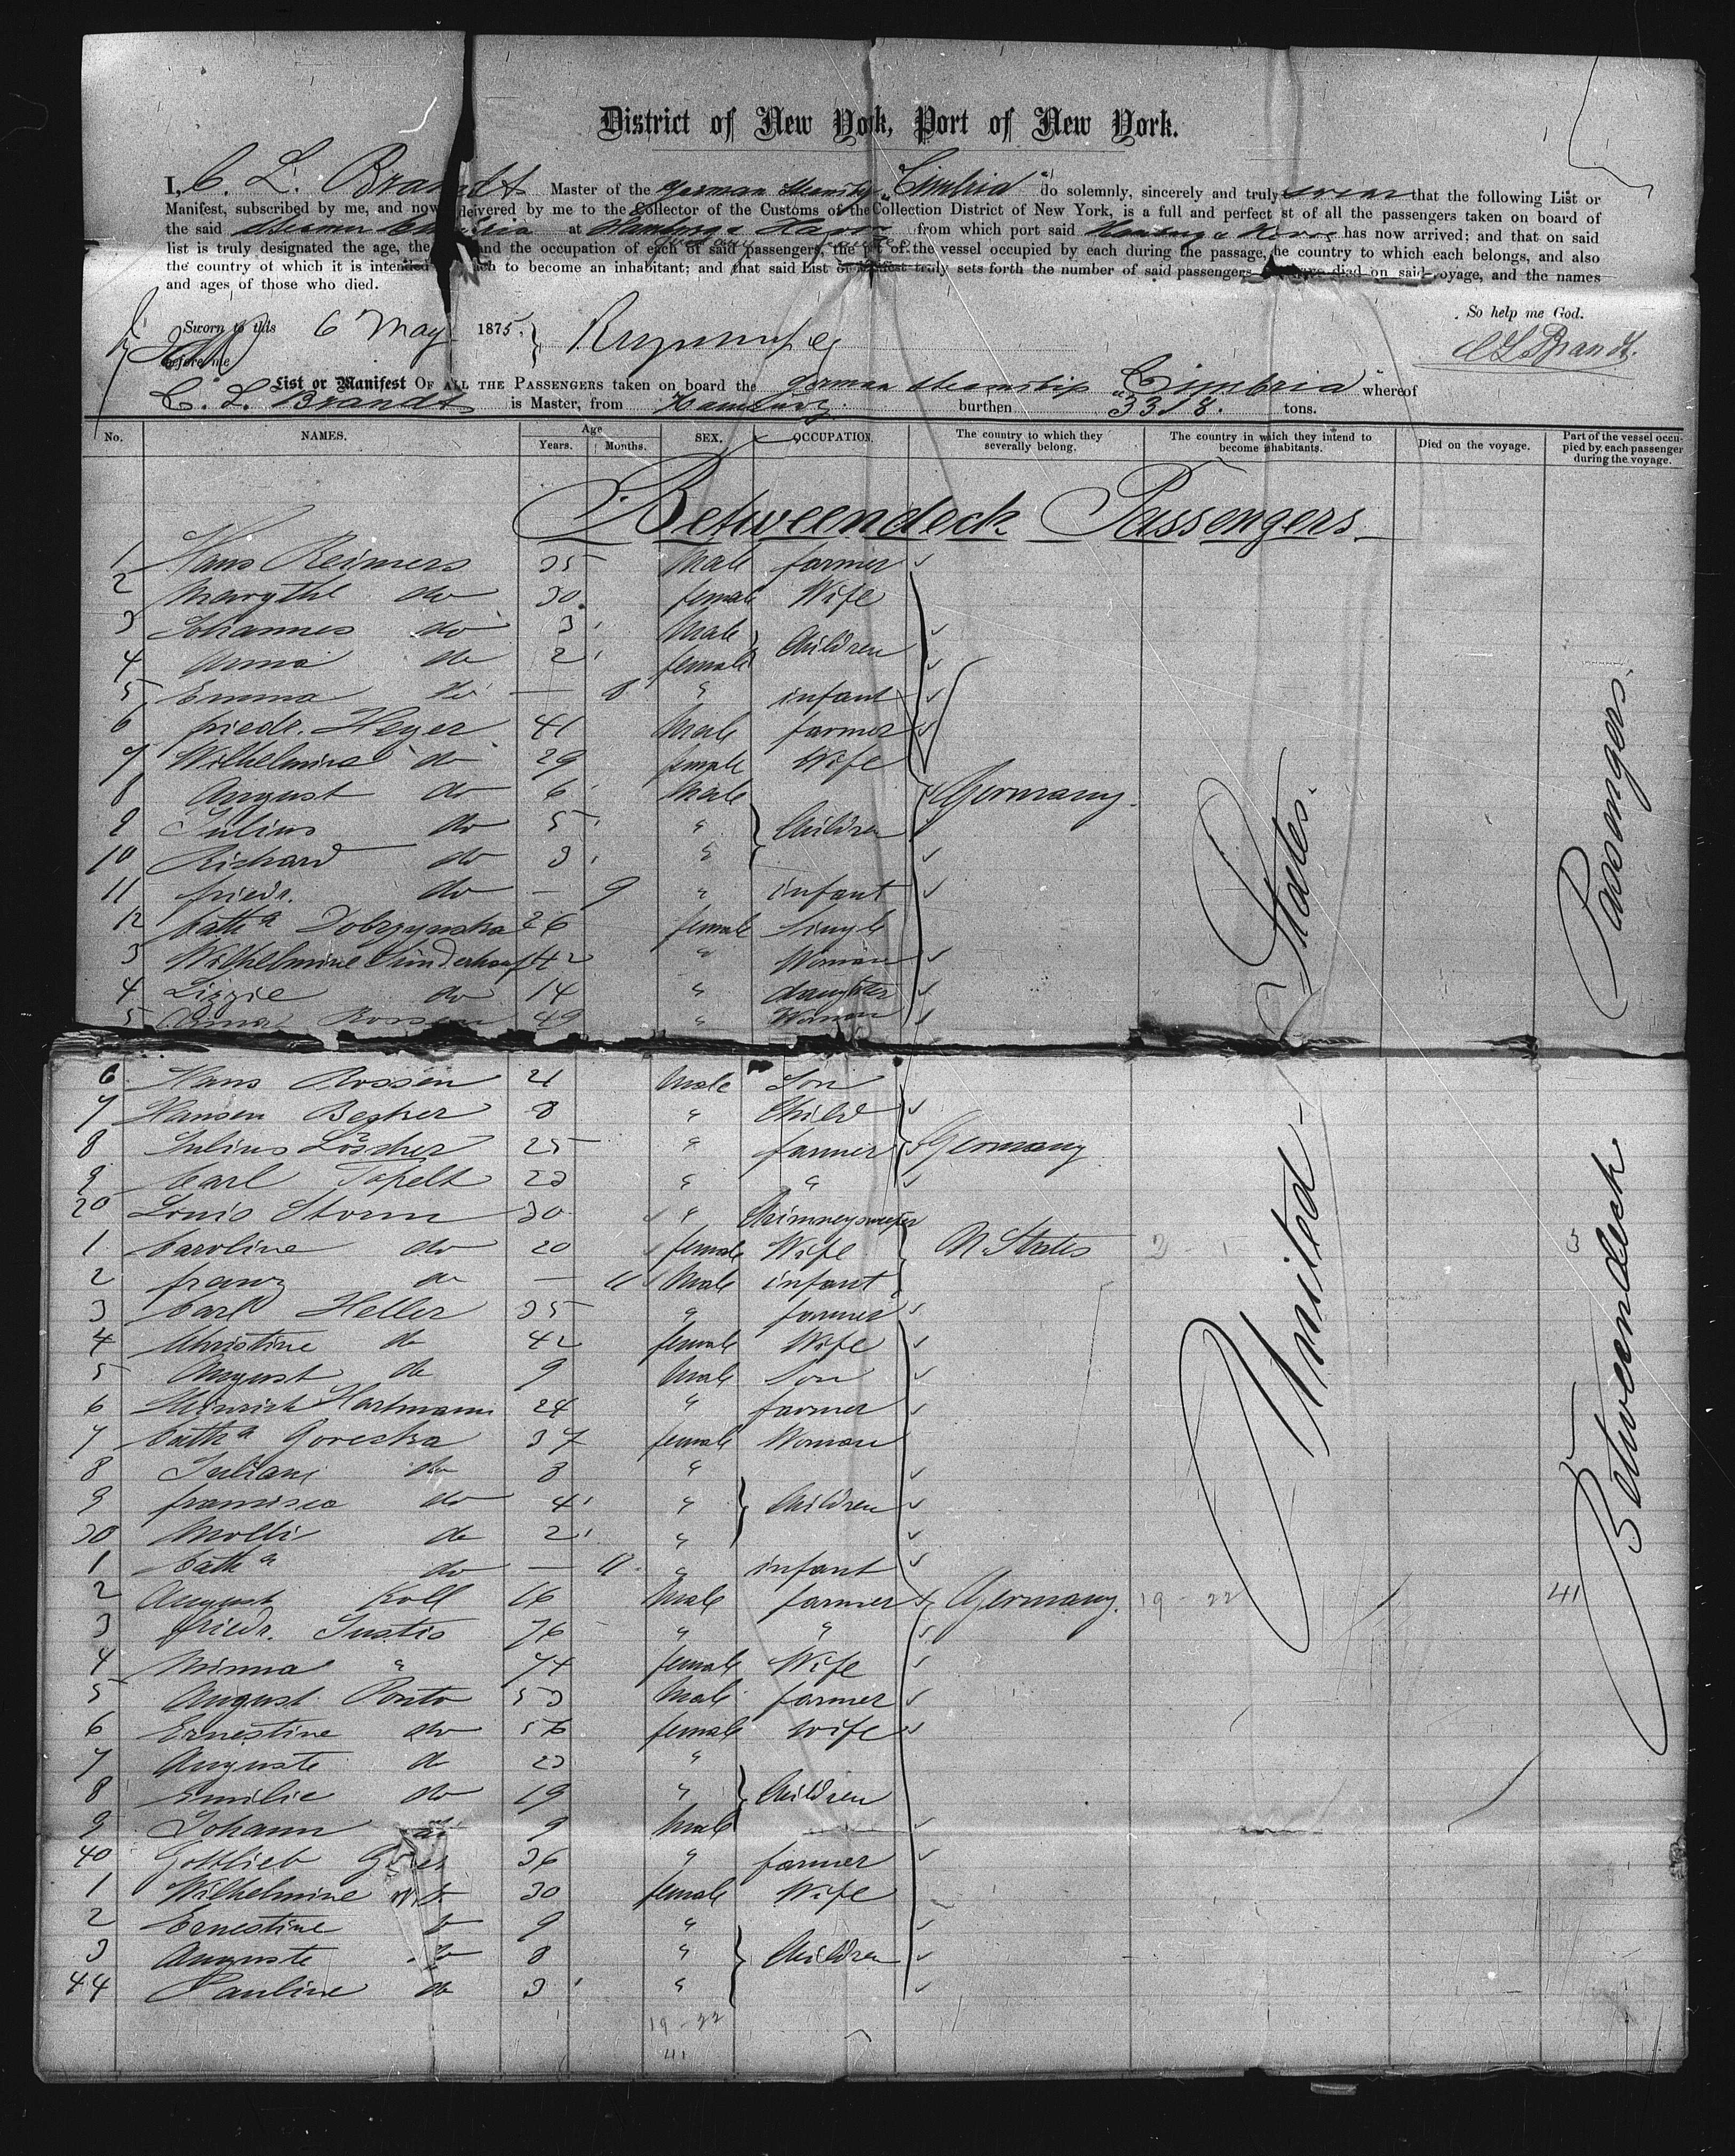 District of New York, Port of New York.
I, C. L. Brandt Master of the German Steamship "Cimbria" do solemnly, sincerely and truly swear that the following List or
Manifest, subscribed by me, and now delivered by me to the Collector of the Customs of the Collection District of New York, is a full and perfect st of all the passengers taken on board of
the said Steamer Cimbria at Hamburg & Havre from which port said Hamburg & Havre has now arrived; and that on said
list is truly designated the age, the and the occupation of each of said passengers, the p of the vessel occupied by each during the passage, he country to which each belongs, and also
the country of which it is intended ach to become an inhabitant; and that said List or truly sets forth the number of said passengers died on said oyage, and the names
and ages of those who died.
So help me God.
Sworn to this 6 May 1875.
before me
C L Brandt.
List or Manifest OF ALL THE PASSENGERS taken on board the German Steamship "Cimbria" whereof
C. L. Brandt is Master, from Hamburg burthen 3318. tons.
No. NAMES. Age Years. Months. SEX. OCCUPATION. The country to which they severally belong. The country in which they intend to become inhabitants. Died on the voyage. Part of the vessel occupied by each passenger during the voyage.
Betweendeck Passengers
1 Hans Reimers 35 Male farmer
2 do 30 female Wife
3 Johannes do 3 Male Children
4 Anna do 2 female
5 Emma do — 8 " infant
6 friedr. Heyer 41 Male farmer
7 Wilhelmina do 29 female Wife
8 August do 6 Male Germany.
9 Julius do 5 " Children
10 Richard do 3 "
11 friedr. do — 9 " infant
12 Cath a Dobrzynska 26 female Single
3 Wilhelmine 42 " Woman
4 Lizzie do 14 " daughter
5 Anna Rossen 49 " Woman
6 Hans Rossen 21 Male Son
7 Hansen Becker 8 " Child
8 Julius Löscher 25 " farmer Germany
9 Carl 23 " "
20 Louis Storm 30 " Chimneysweeper
1 Caroline do 20 female Wife U States 2 - 1 3
2 franz do — 11 Male infant
3 Carl Heller 35 " farmer
4 Christine do 42 female Wife
5 August do 9 Male Son
6 Heinrich Hartmann 24 " farmer
7 Cath a Goreska 37 female Woman
8 Juliane do 8 "
9 francisca do 4 " Children
30 Molli do 2 "
1 Cath a do — 11 " infant
2 August Koll 16 Male farmer Germany. 19 - 22 41
3 friedr. Justis 76 " "
4 Minna " 74 female Wife
5 August Ponto 53 Male farmer
6 Ernestine do 56 female wife
7 Auguste do 23 "
8 Emilie do 19 " Children
9 Johann do 9 Male
40 Gottlieb 36 " farmer
1 Wilhelmine do 30 female Wife
2 Ernestine do 9 "
3 Auguste do 8 " Children
44 Pauline do 3 "
19 - 22
41
United States.
Betweendeck Passengers.